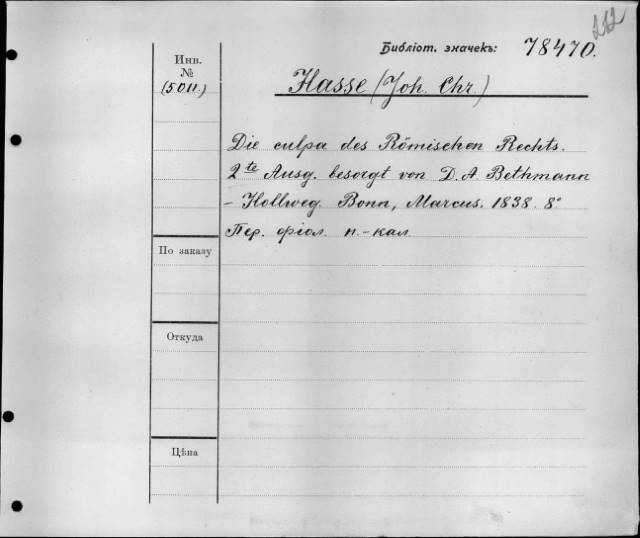 212
Библіот. значекъ: 78470.
Инв.
№
(5011.)
Hasse (Joh. Chr.)
Die culpa des Römischen Rechts.
2te Ausg. besorgt von D. A. Bethmann
- Hollweg. Bonn, Marcus. 1838. 8°
Пер. фіол. п.-кал.
По заказу
Откуда
Цѣна